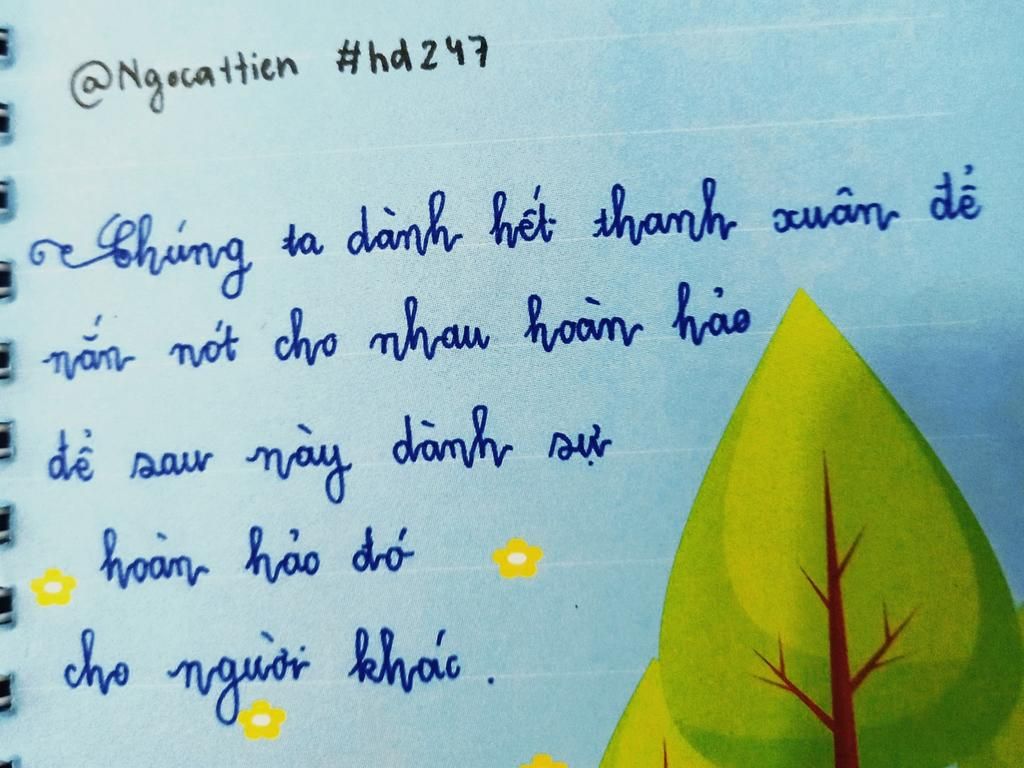 @Ngocattien #hd247
Chúng ta dành hết thanh xuân để
nắn nót cho nhau hoàn hảo
để sau này dành sự
hoàn hảo đó
cho người khác.